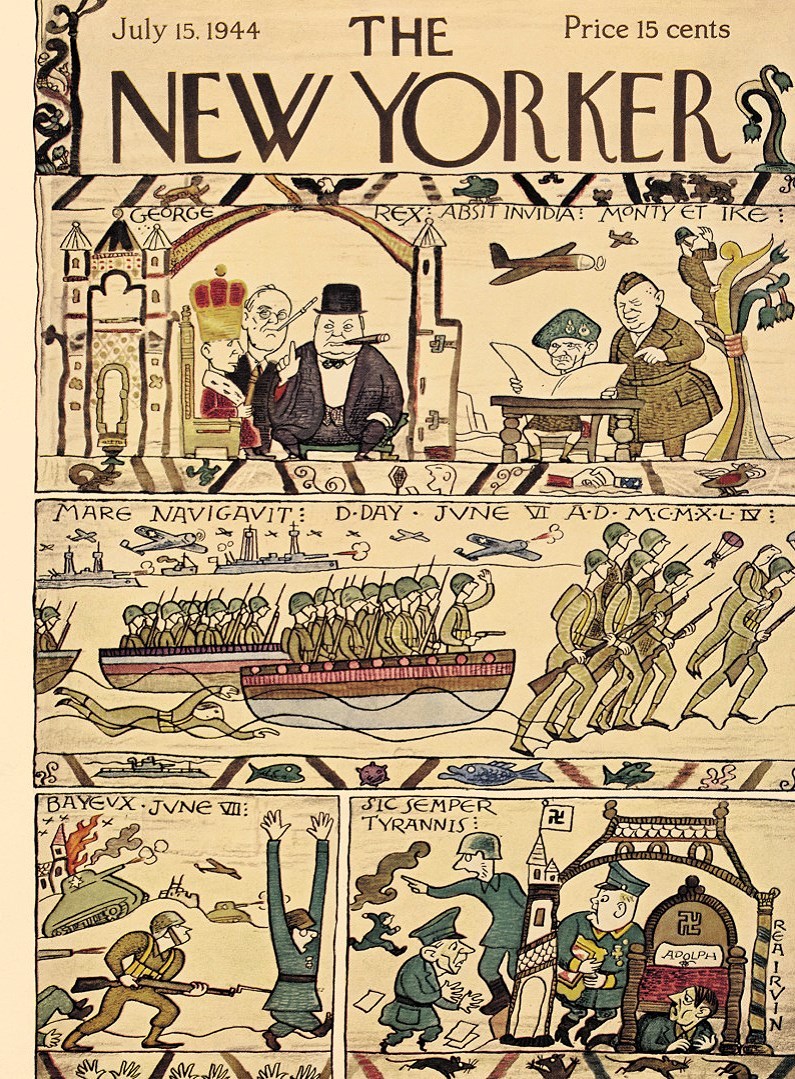 July 15, 1944
THE
Price 15 cents
NEW YORKER
GEORGE REX: ABSIT INVIDIA: MONTY ET IKE:
MARE NAVIGAVIT: D·DAY · JVNE VI A·D· M·C·M·X·L·IV:
BAYEVX · JVNE VII:
SIC SEMPER
TYRANNIS:
ADOLPH
REA IRVIN